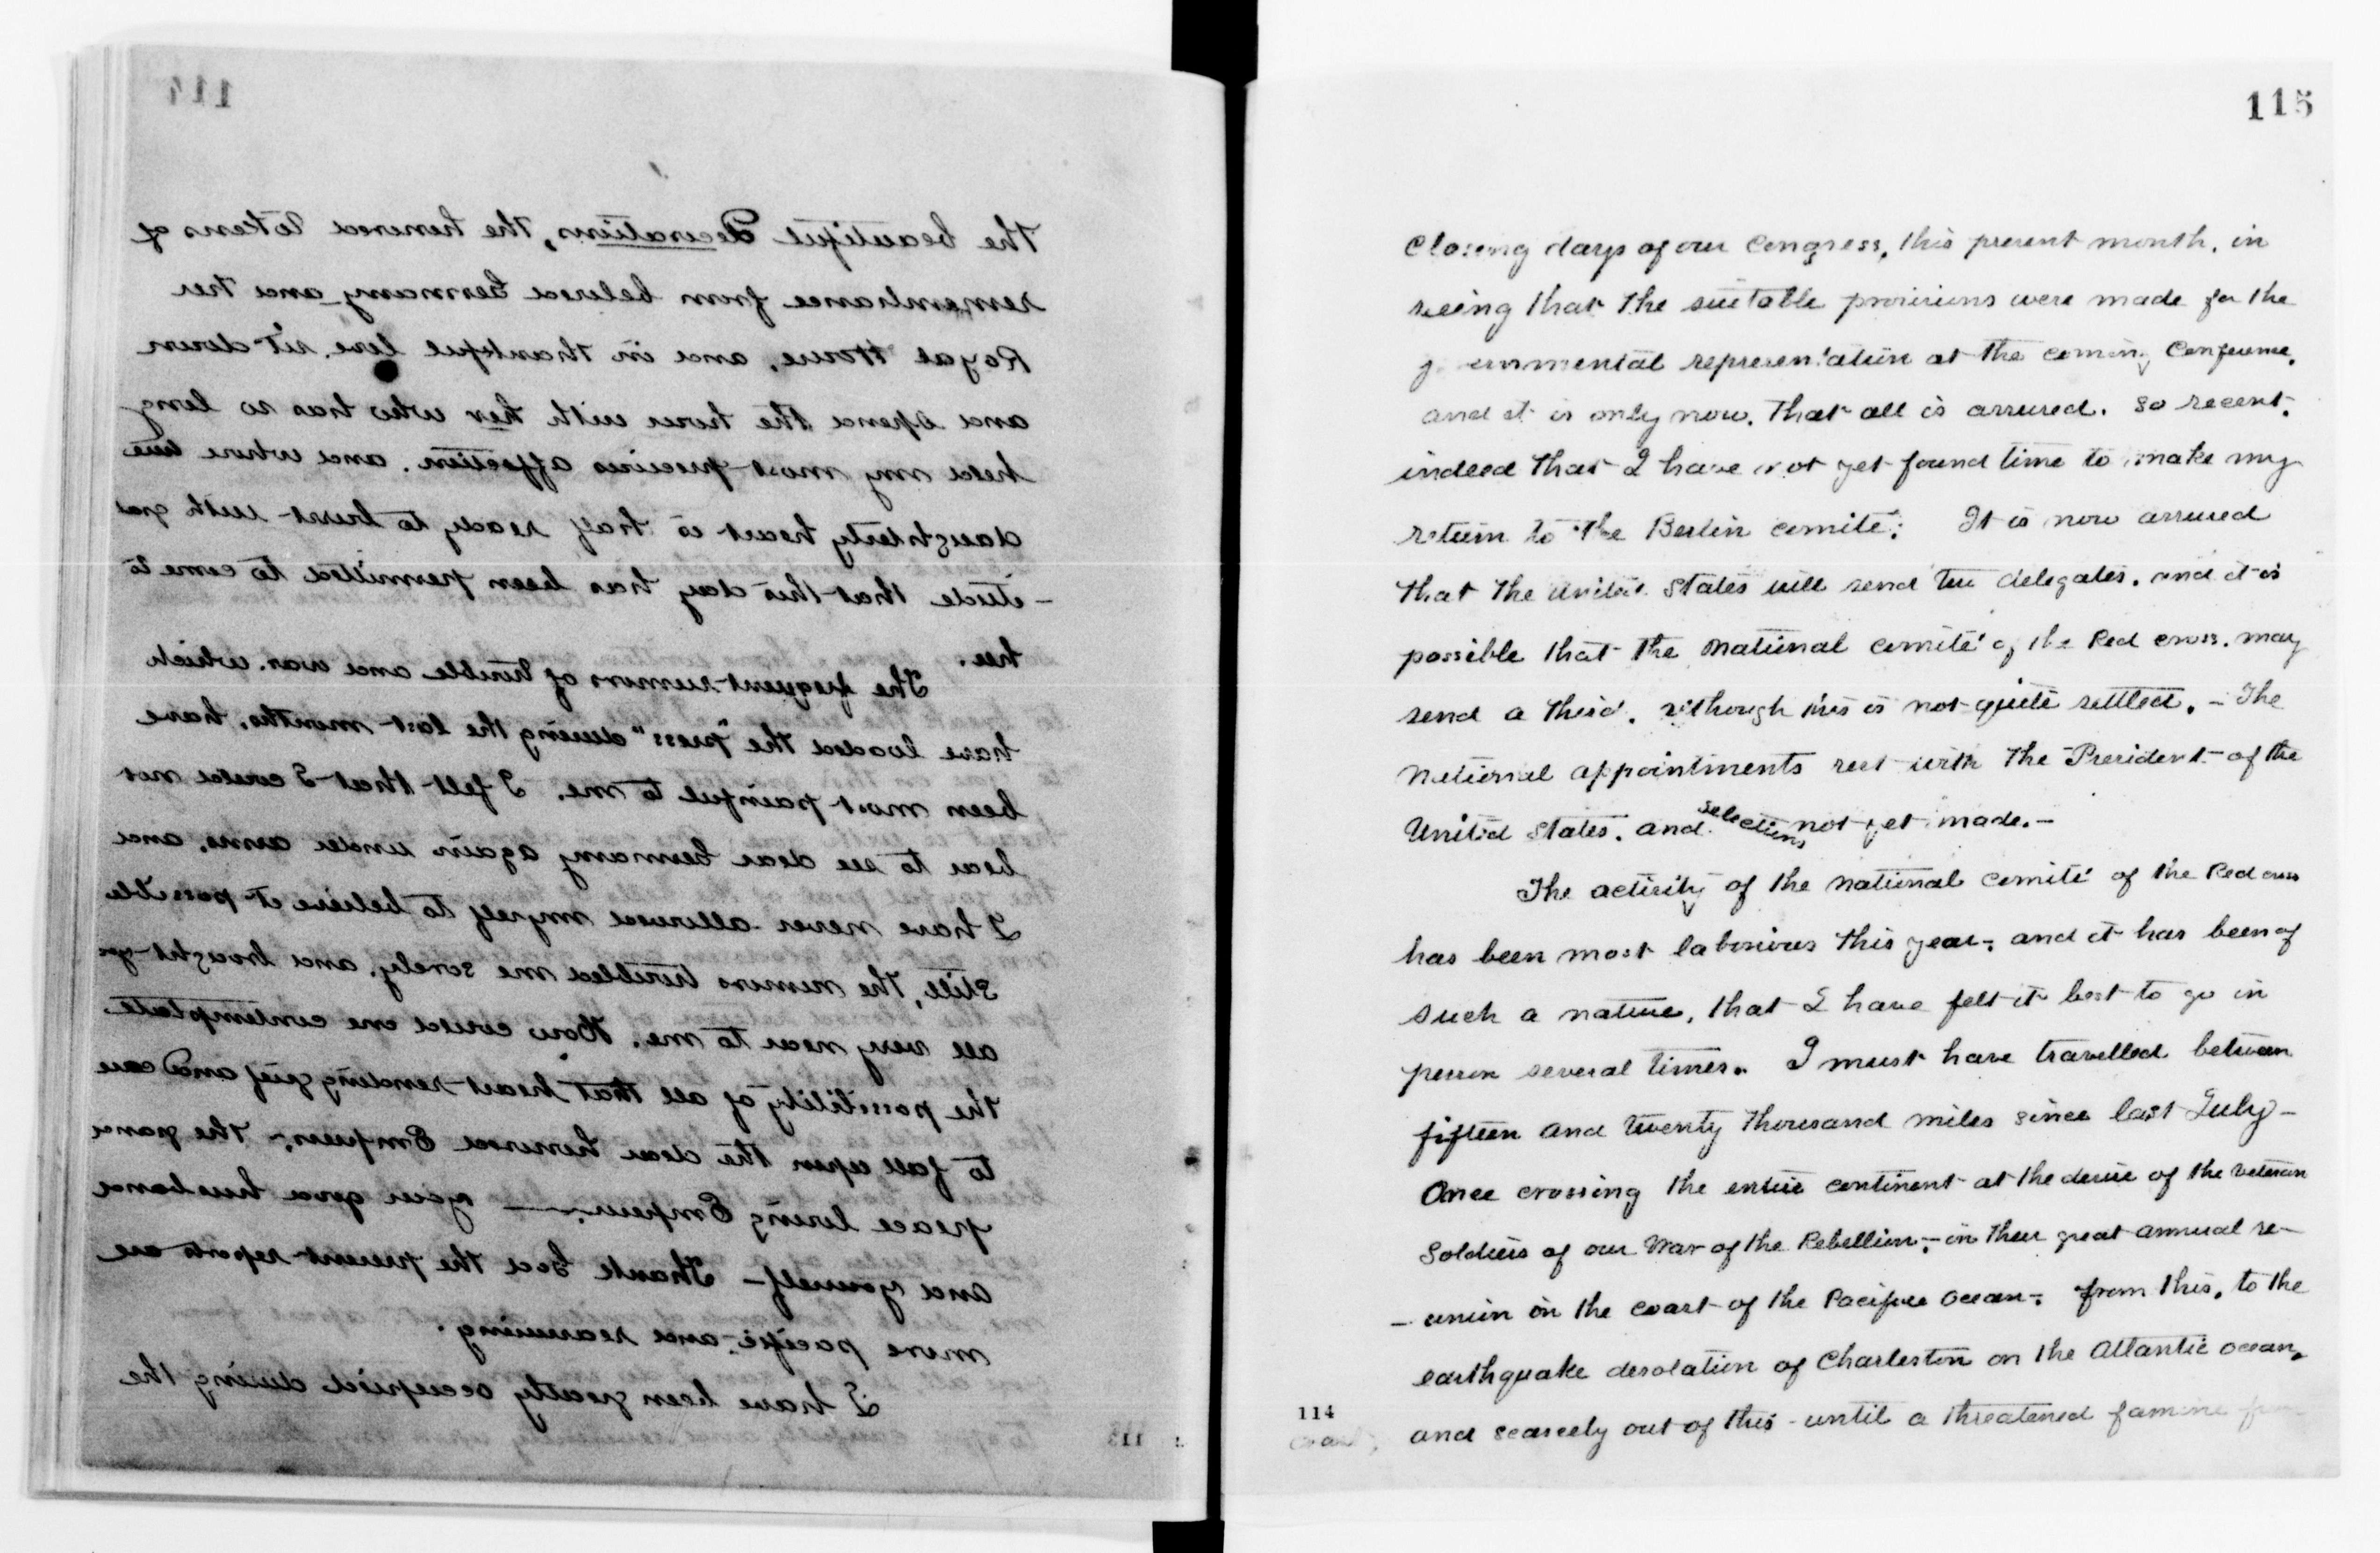 114
the beautiful decorations, the honored tokens of
remembrance from beloved Germany and her
Royal House, and in thankful love, sit down
and spend the hour with her who has so long
held my most precious affection. and where true
daughterly heart is half ready to burst with grat
-itude that this day has been permitted to come to
her.
The frequent rumors of trouble and war. which
have loaded the "press" during the last months, have
been most painful to me. I felt that I could not
bear to see dear Germany again under arms, and
I have never allowed myself to believe it possible
Still, the rumors troubled me sorely, and brought you
all very near to me. How could one contemplate
the possibility of all that heart-rending grief and care
to fall upon the dear honored Empress; The grand
peace loving Emperor; — your good husband
and yourself — Thank God the present reports are
more pacific and reassuring.
I have been greatly occupied during the
113
115
Closing days of our Congress, this present month, in
seeing that the suitable provisions were made for the
g ernmental representation at the coming Conference,
and it is only now. that all is assured. so recent.
indeed that I have not yet found time to make my
return to the Berlin comité: It is now assured
that the United States will send two delegates. and it is
possible that the National comité of the Red cross. may
send a third. although this is not quite settled. — The
National appointments rest with the President of the
United States. and selections not yet made. —
The activity of the national comité of the Red cross
has been most laborious this year; and it has been of
such a nature, that I have felt it best to go in
person several times. I must have travelled between
fifteen and twenty thousand miles since last July —
Once crossing the entire continent at the desire of the veteran
Soldiers of our War of the Rebellion; in their great annual re-
- union on the coast of the Pacific ocean; from this, to the
earthquake desolation of Charleston on the Atlantic ocean,
and scarcely out of this - until a threatened famine from
114